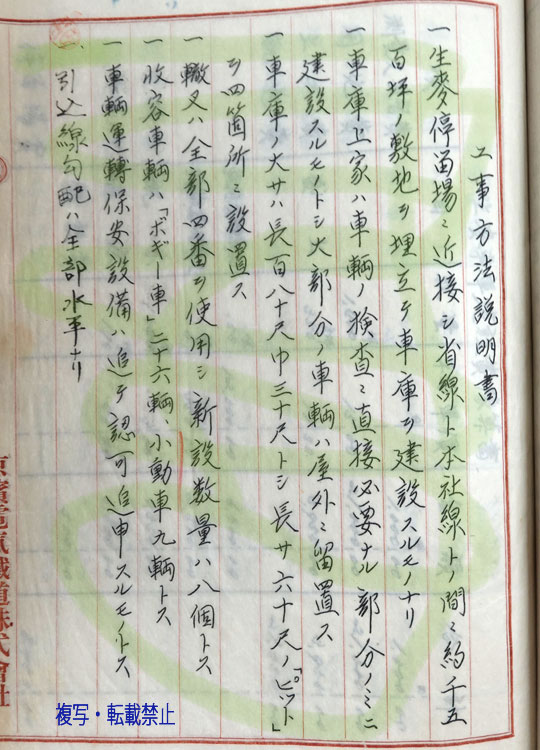 工事方法説明書
一生麥停留場ニ近接シ省線ト本社線トノ間ニ約千五
百坪ノ敷地ヲ埋立テ車庫ヲ建設スルモノナリ
一車庫上家ハ車輌ノ検査ニ直接必要ナル部分ノミニ
建設スルモノトシ大部分ノ車輌ハ屋外ニ留置ス
一車庫ノ大サハ長百八十尺巾三十尺トシ長サ六十尺ノ「ピット」
ヲ四箇所ニ設置ス
一轍叉ハ全部四番ヲ使用シ新設数量ハ八個トス
一收容車輌ハ「ボギー車」二十六輌、小動車九輌トス
一車輌運轉保安設備ハ追テ認可追申スルモノトス
引込線勾配ハ全部水平ナリ
京濱電氣鐵道株式會社
複写・転載禁止